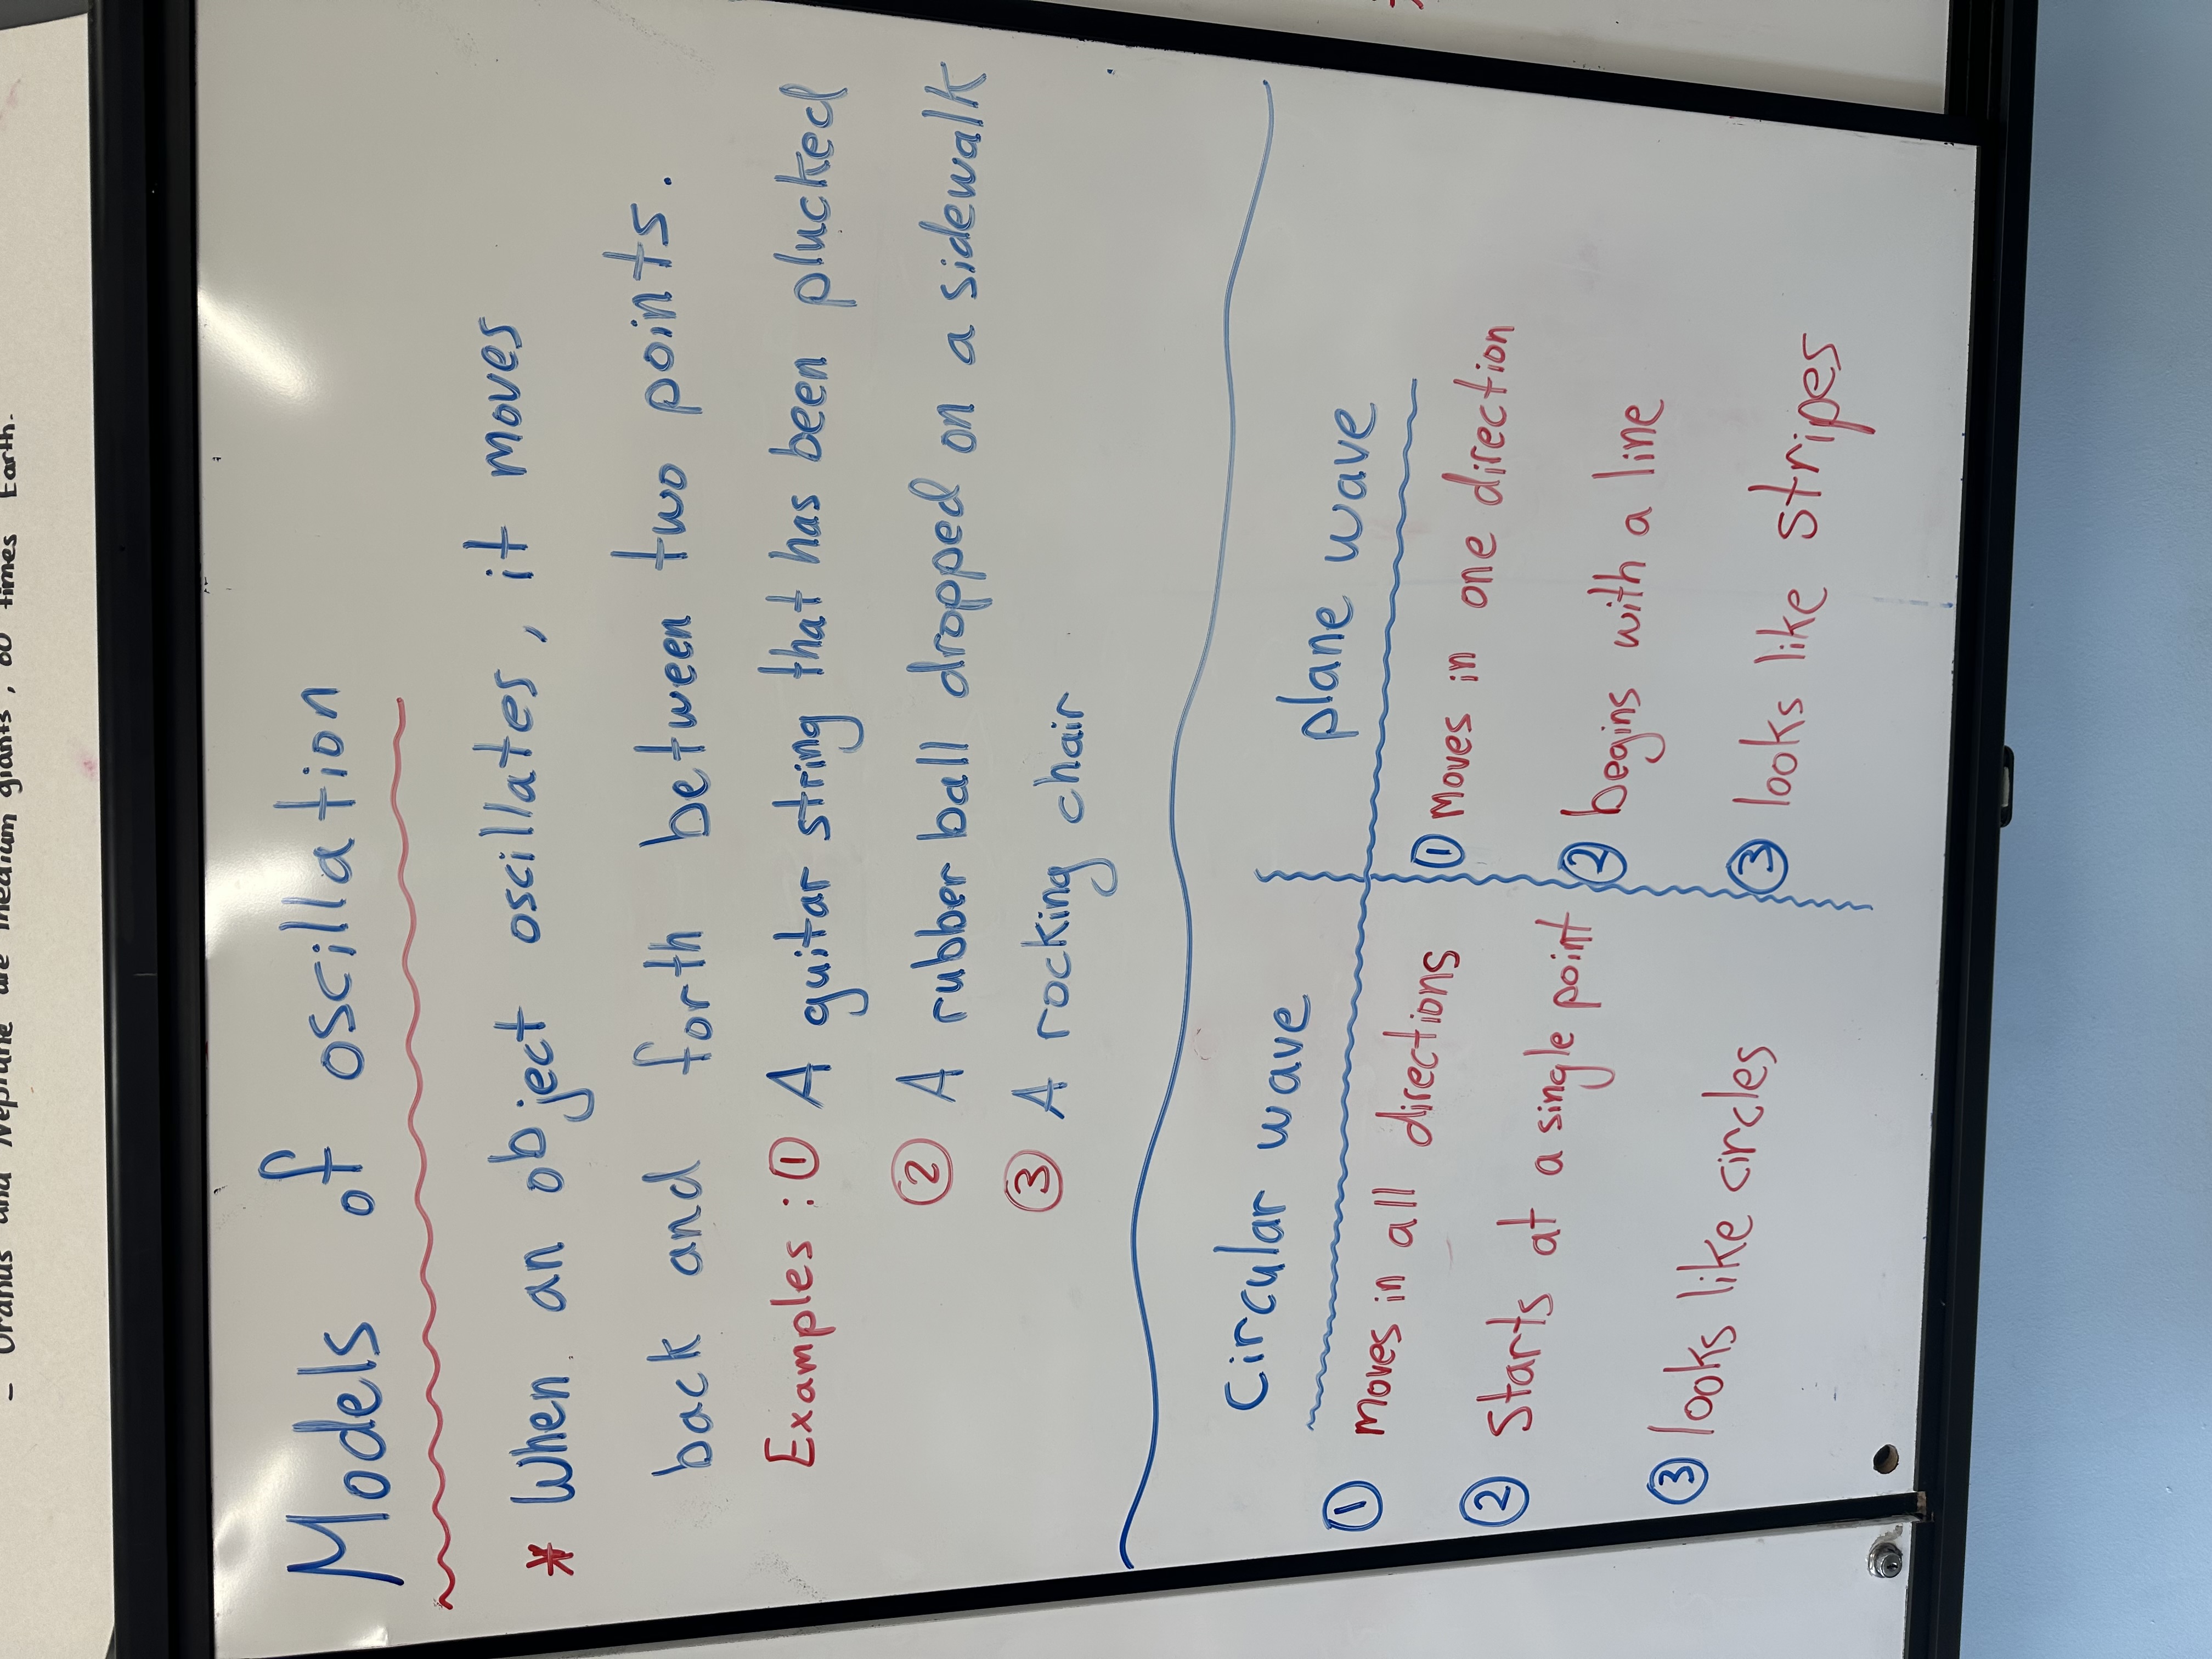 - Uranus and Neptune are medium giants, 60 times Earth.
Models of oscillation
* When an object oscillates, it moves
back and forth between two points.
Examples: ① A guitar string that has been plucked
② A rubber ball dropped on a sidewalk
③ A rocking chair
Circular wave
① moves in all directions
② Starts at a single point
③ looks like circles
plane wave
① moves in one direction
② begins with a line
③ looks like stripes